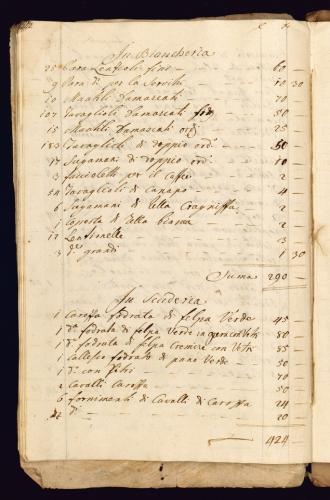 In Biancheria
25 Para Lenzuoli fini — 60
9 Para di per la Servitù — 10 30
10 Mantili Damascati — 70
107 Tavaglioli Damascati fini — 50
15 Mantili Damascati ord. — 25
183 Tavaglioli di doppio ord. — 60
17 Sugamani di doppio ord. — 10
3 per il caffè — 2
54 Tavaglioli di Canapa — 4
6 Sugamani di tella — 2
1 Coperta di tella bianca — 2
12 Lentimelle — 3
3 d.i grandi — 1 30
Suma 290 —
In Scuderia
1 Carossa fodrata di felpa Verde — 45
1 d.a fodrata di felpa Verde in con Vetri — 80
1 d.a fodrata di felpa Cremise con Vetri — 85
1 Callesse fodrato di pano Verde — 50
1 d.o con — 70
2 Cavalli Carossa — 50
6 fornimenti di Cavalli di Carossa — 24
di — 20
424 —